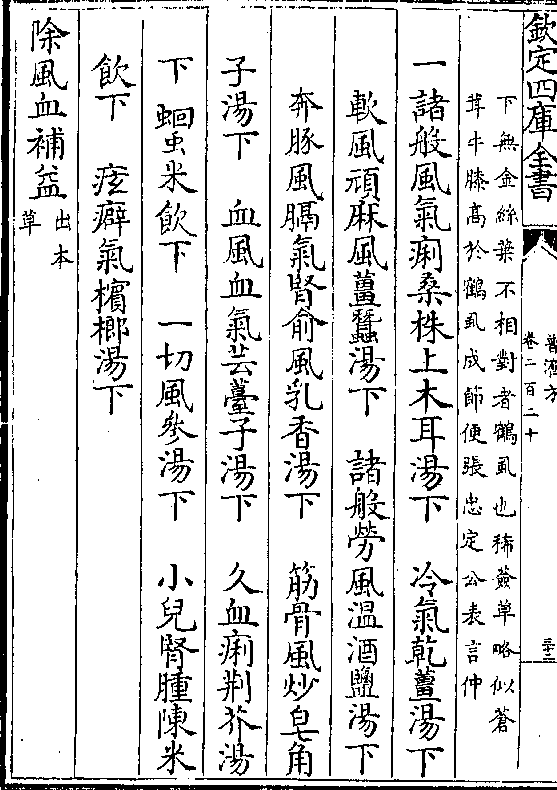 欽定四庫全書
普濟方
卷二百二十
三十三
下無金絲葉不相對者鶴虱也豨薟草略似蒼
茸牛膝高於鶴虱成節便張忠定公表言仲
一諸般風氣痢桑株上木耳湯下　冷氣乾薑湯下
軟風頑麻風薑蠶湯下　諸般勞風温酒鹽湯下
奔豚風膈氣腎俞風乳香湯下　筋骨風炒皂角
子湯下　血風血氣芸薹子湯下　久血痢荆芥湯
下　蛔䖝米飲下　一切風參湯下　小兒腎腫陳米
飲下　痃癖氣檳榔湯下
除風血補益出本
草